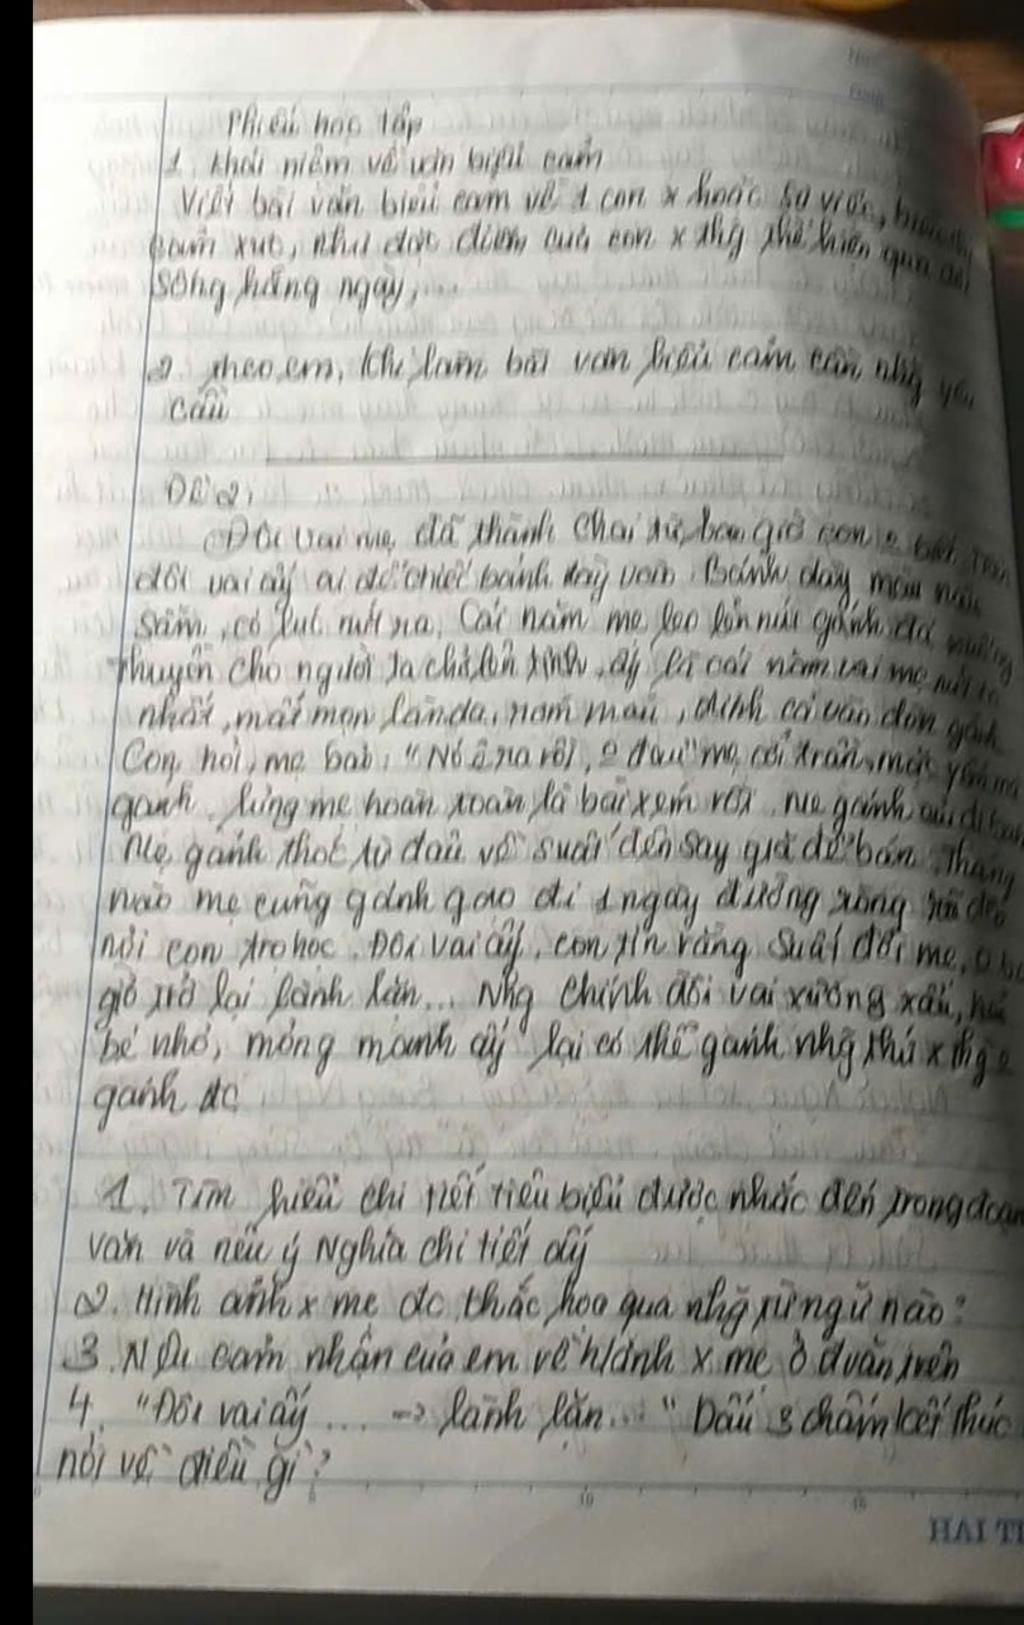 Phiếu học tập
1 khái niệm về văn biểu cảm
Viết bài văn biểu cảm về 1 con x hoặc sự việc,
cảm xúc, như đặc điểm của con x thg thể hiện qua
sống hằng ngày,
2 theo em, khi làm bài văn biểu cảm cần nhg yêu
cầu
Đề 2,
Đôi vai mẹ đã thành chai từ bao giờ con
đôi vai ấy ai để chiếc bánh dày vào. Bánh dày
sẫm, có lúc nứt ra. Cái năm mẹ leo lên núi gánh đá
thuyền cho người ta chở lên tỉnh, ấy là cái năm vai mẹ
nhất, mất mọn lần da, rớm máu, dính cả vào đòn gánh
Con hỏi, mẹ bảo: "Nó ra rồi, đau" mẹ cởi trần, mặc
gánh. Lưng mẹ hoàn toàn là bài xem rồi. mẹ gánh củi đi
Mẹ gánh thóc từ đầu về suất đến say giã để bán. Tháng
nào mẹ cũng gánh gạo đi 1 ngày đường ròng rã
nơi con trọ học. Đôi vai ấy, con tin rằng suất đời mẹ,
giờ trở lại lành lặn... Nhg chính đôi vai xương xẩu,
bé nhỏ, mỏng manh ấy lại có thể gánh nhg thứ x thg
gánh đc
1. Tìm hiểu chi tiết tiêu biểu được nhắc đến trong đoạn
văn và nêu ý Nghĩa chi tiết ấy
2. Hình ảnh x mẹ đc khắc hoạ qua nhg từ ngữ nào?
3. Nêu cảm nhận của em về h/ảnh x mẹ ở đvăn trên
4. "Đôi vai ấy ... -> lành lặn..." Dấu 3 chấm kết thúc
nói về điều gì?
HAI